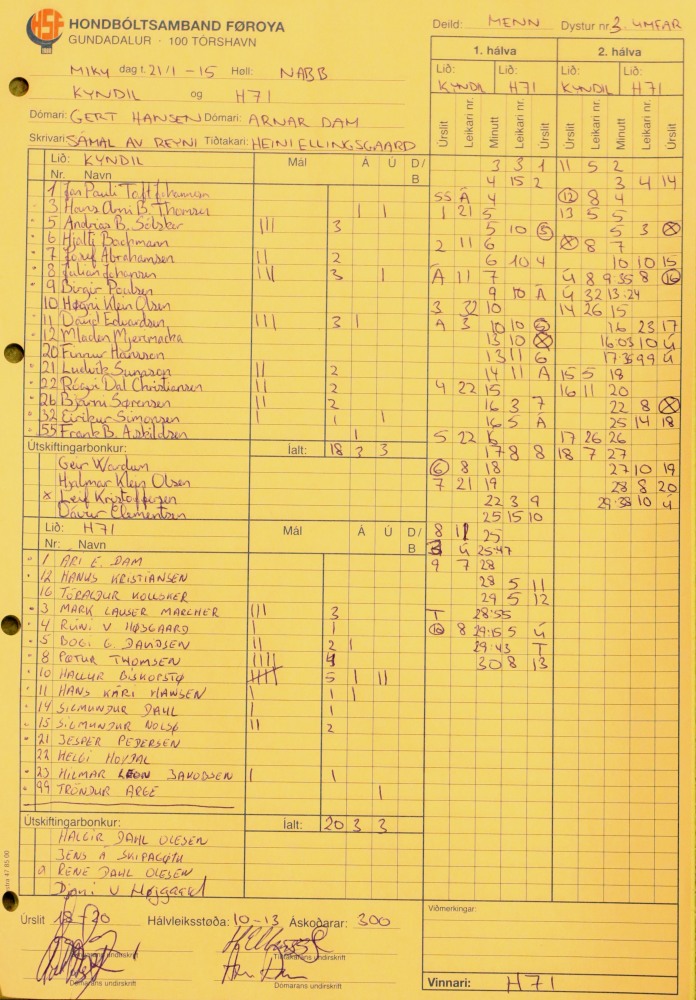 HSF
1980
HONDBÓLTSAMBAND FØROYA
GUNDADALUR · 100 TÓRSHAVN
Deild: MENN Dystur nr. 3. UMFAR
MIKU dag t. 21/1 -15 Høll: NABB
KYNDIL og H71
Dómari: GERT HANSEN Dómari: ARNAR DAM
Skrivari: SÁMAL AV REYNI Tíðtakari: HEINI ELLINGSGAARD
Lið: KYNDIL Mál Á Ú D/B
Nr. Navn
1 Jan Pauli
3 Hans Arni B. Thomsen I I
5 Andrias B. III 3
6 Hjalti Bachmann
7 Jósef Abrahamsen II 2
8 Julian Johansen III 3 I
9 Birgir Poulsen
10 Høgni Klein Olsen
11 Dávid Edvardsen III 3 I
12 Mladen
20 Finnur Hansson
21 Ludvik II 2
22 Rógvi Dal Christiansen II 2
26 Bjarni Sørensen II 2
32 Eirikur Simonsen I 1 I
55 Frank B. Askildsen I
Útskiftingarbonkur: Íalt: 18 3 3
Geir Wardum
Hjalmar Klein Olsen
x Leif Kristoffersen
Dávur Clementsen
Lið: H71 Mál Á Ú D/B
Nr: Navn
1 ARI E. DAM
12 HANUS KRISTIANSEN
16 TÓRALDUR
3 MARK LAUSER MARCHER III 3
4 RÚNI V HØJGAARD I 1
5 BOGI G. DAVIDSEN II 2 I
8 PÆTUR THOMSEN IIII 4
10 HALLUR BISKOPSTØ IIIII 5 I II
11 HANS KÁRI HANSEN I 1 I
14 SIGMUNDUR DAHL I 1
15 SIGMUNDUR NOLSØ II 2
21 JESPER PEDERSEN
22 HELGI HOYDAL
23 HILMAR LEON JAKOBSEN I 1
99 TRÓNDUR ARGE I
Útskiftingarbonkur: Íalt: 20 3 3
HALGIR DAHL OLESEN
JENS Á SKIPAGØTU
RENÉ DAHL OLESEN
Dani V Højgaard
Úrslit 18 - 20 Hálvleiksstøða: 10 - 13 Áskoðarar: 300
Tíðtakarans undirskrift
Dómarans undirskrift
Dómarans undirskrift
1. hálva
Lið: KYNDIL Lið: H71
Úrslit Leikari nr. Minutt Leikari nr. Úrslit
3 3 1
4 15 2
55 Á 4
1 21 5
5 10 5
2 11 6
6 10 4
Á 11 7
9 10 Á
3 32 10
Á 3 10 10 5
13 10 X
13 11 6
14 11 Á
4 22 15
16 3 7
16 5 Á
5 22 16
17 8 8
6 8 18
7 21 19
22 3 9
25 15 10
8 11 25
3 Ú 25:47
9 7 28
28 5 11
29 5 12
T 28:55
10 8 29:15 5 Ú
29:43 T
30 8 13
2. hálva
Lið: KYNDIL Lið: H71
Úrslit Leikari nr. Minutt Leikari nr. Úrslit
11 5 2
3 4 14
12 8 4
13 5 5
5 3 X
X 8 7
10 10 15
Ú 8 9:35 8 16
Ú 32 13:24
14 26 15
16 23 17
16:03 10 Ú
17:35 99 Ú
15 5 18
16 11 20
22 8 X
25 14 18
17 26 26
18 7 27
27 10 19
28 8 20
29:38 10 Ú
Viðmerkingar:
Vinnari: H71